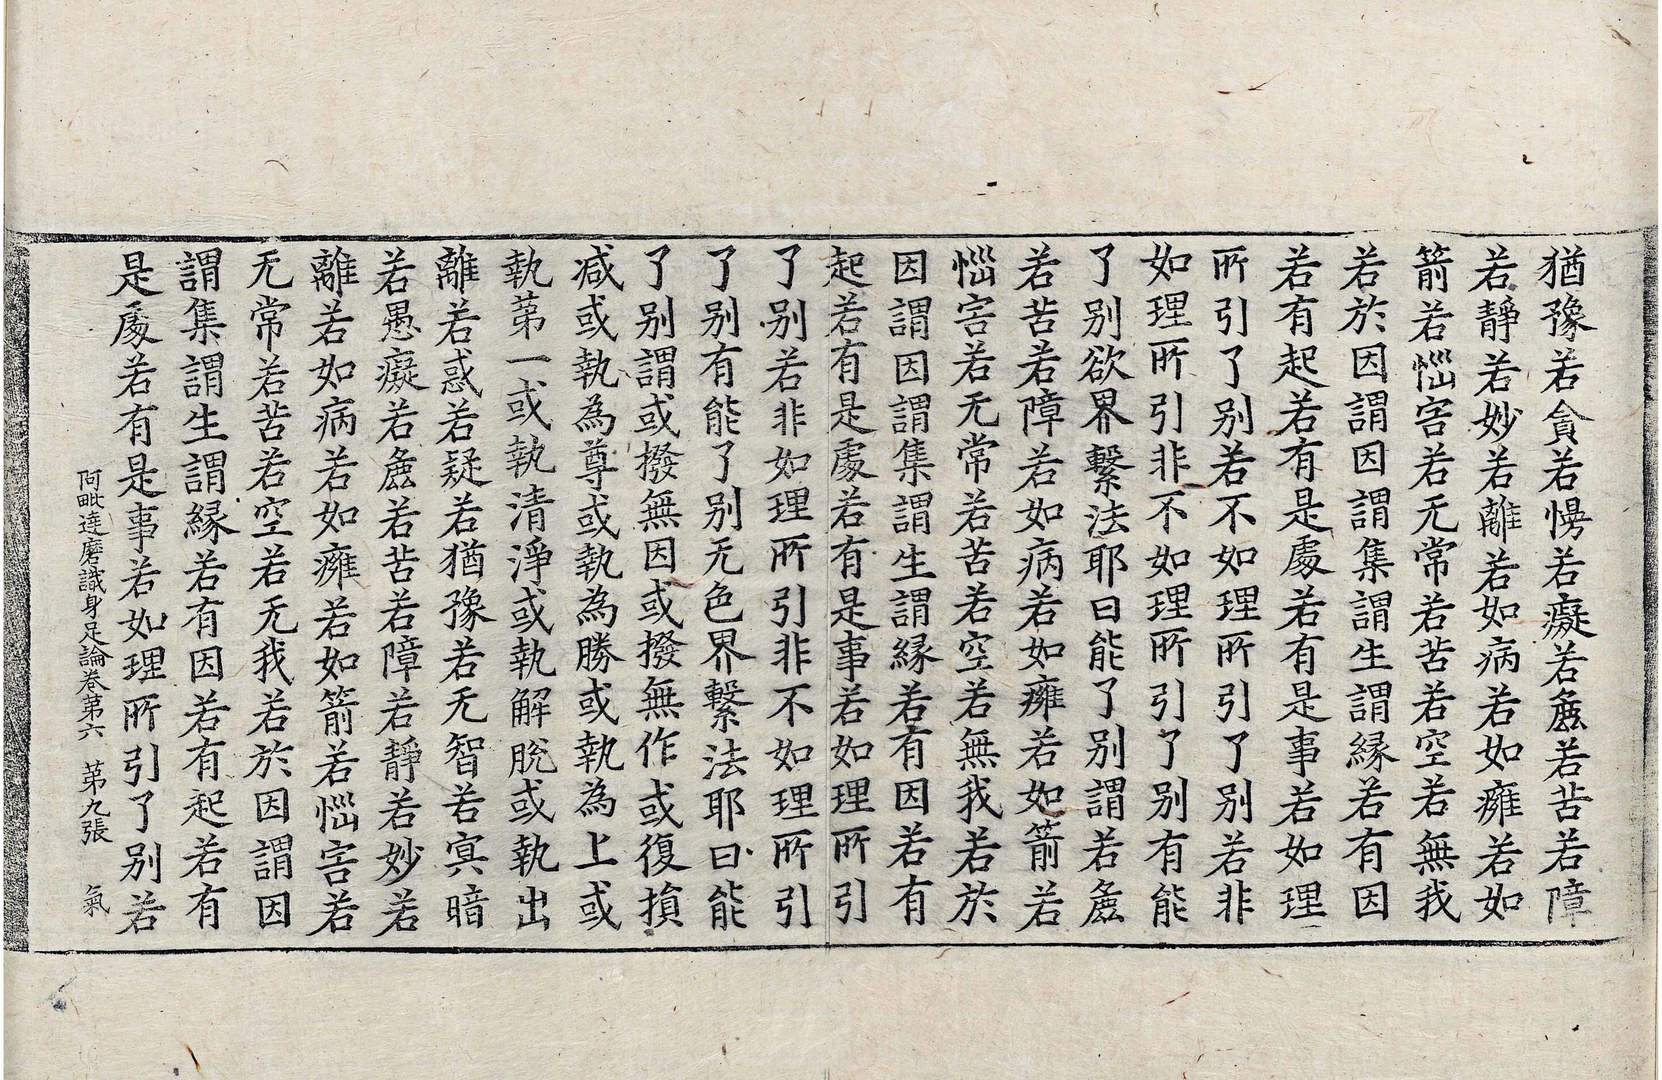 猶豫若貪若慢若癡若麁若苦若障
若靜若妙若離若如病若如癰若如
箭若惱害若无常若苦若空若無我
若於因謂因謂集謂生謂緣若有因
若有起若有是處若有是事若如理
所引了別若不如理所引了別若非
如理所引非不如理所引了別有能
了別欲界繫法耶曰能了別謂若麁
若苦若障若如病若如癰若如箭若
惱害若无常若苦若空若無我若於
因謂因謂集謂生謂緣若有因若有
起若有是處若有是事若如理所引
了別若非如理所引非不如理所引
了別有能了別无色界繫法耶曰能
了別謂或撥無因或撥無作或復損
减或執為尊或執為勝或執為上或
執第一或執清淨或執解脫或執出
離若惑若疑若猶豫若无智若冥暗
若愚癡若麁若苦若障若靜若妙若
離若如病若如癰若如箭若惱害若
无常若苦若空若无我若於因謂因
謂集謂生謂緣若有因若有起若有
是處若有是事若如理所引了別若
阿毗達磨識身足論卷第六　第九張　氣